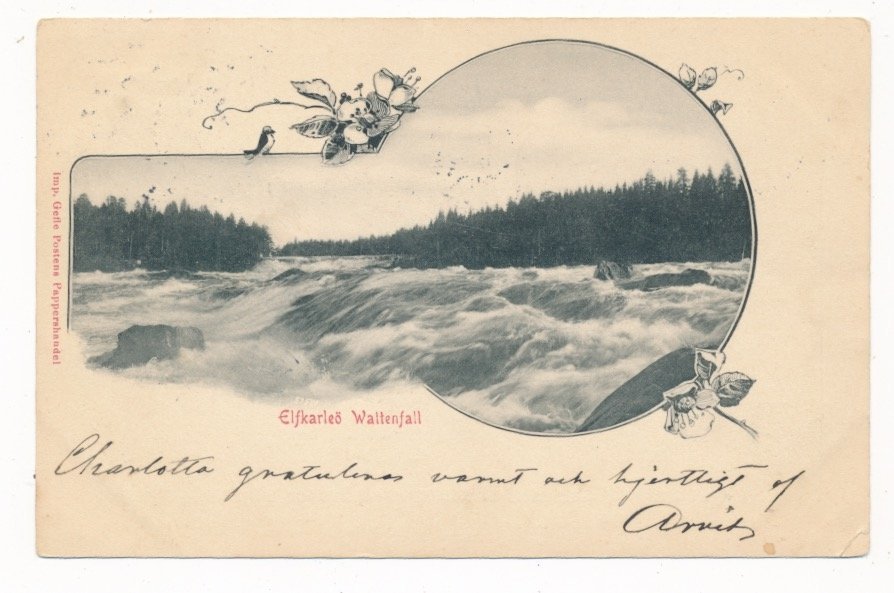 Imp. Gefle Postens Pappershandel
Elfkarleö Wattenfall
Charlotta gratuleras varmt och hjertligt af
Arvid